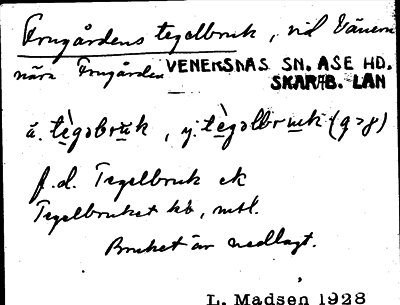 Frugårdens tegelbruk, vid Vänern
nära Frugården VENERSNÄS SN. ÅSE HD.
SKARAB. LÄN
ä. tè̱gəbru̱k, y. tè̱gəlbru̱k (g>g)
f.d. Tegelbruk ek
Tegelbruket kb, mtl.
Bruket är nedlagt.
L. Madsen 1928